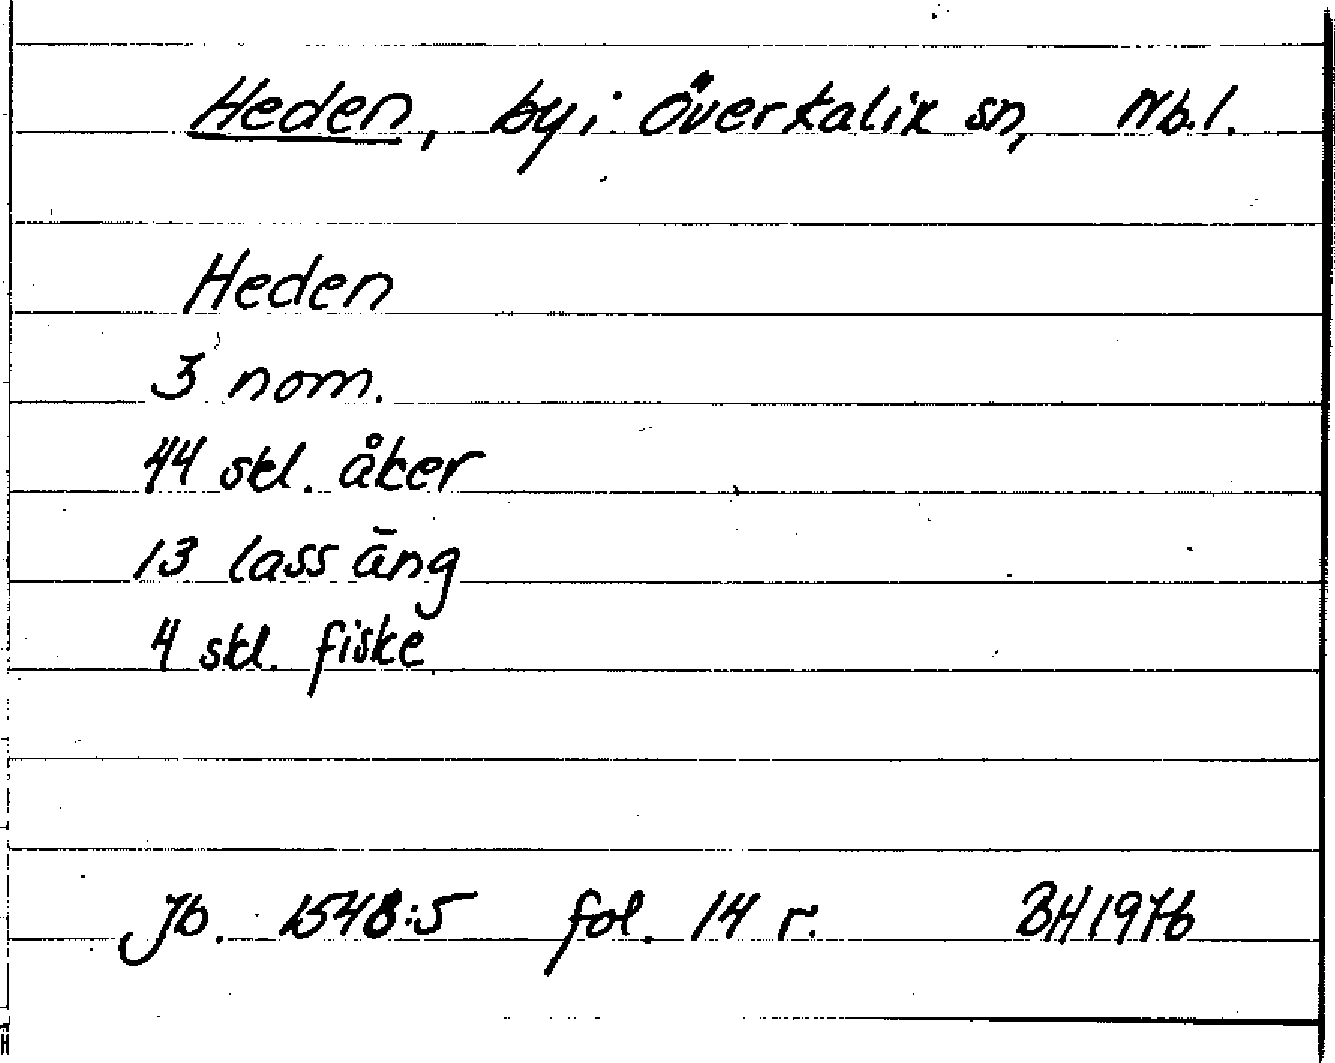 Heden, by i Överkalix sn, Nb.l.
Heden
3 nom.
44 skl. åker
13 lass äng
4 skl. fiske
Jb. 1548:5 fol. 14 r. BH 1976